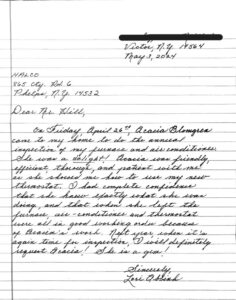 Victor, N.Y. 14564
May 3, 2024
HALCO
865 Cty. Rd. 6
Phelps, N.Y. 14532
Dear Mr. Hill,
On Friday April 26th, Acacia Blomgren
came to my home to do the annual
inspection of my furnace and air conditioner.
She was a delight! Acacia was friendly,
efficient, thorough, and patient with me
as she showed me how to use my new
thermostat. I had complete confidence
that she knew exactly what she was
doing, and that when she left the
furnace, air-conditioner and thermostat
were all in good working order because
of Acacia's work. Next year when it's
again time for inspection I will definitely
request Acacia! She is a gem!
Sincerely,
Lori